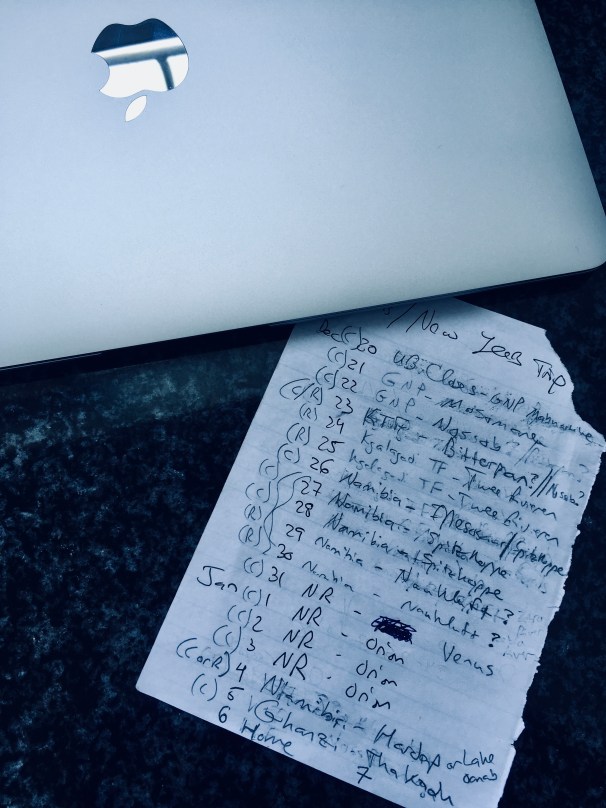 /New Years Trip
Dec (C) 20 UB Closes - GNP
(C) 21 GNP - Mosomane
(C) 22 GNP
(C/R) 23 Nossob
(R) 24 KTP - Bitterpan? / Nossob?
(R) 25 Kgalagadi TF - Twee Rivieren
(C) 26 Kgalagadi TF - Twee Rivieren
(C) 27 Namibia - / Spitzkoppe
(C) 28 Namibia - Spitzkoppe
(R) 29 Namibia - Spitzkoppe
(R) 30 Namibia - Naukluft?
(C) 31 Namibia - Naukluft?
Jan (C) 1 NR - Venus
(C) 2 NR - Orion
(C) 3 NR - Orion
(C or R) 4 NR - Orion
(C) 5 Namibia - Hardap or Lake
6 Ghanzi - Thakadu
Home 7